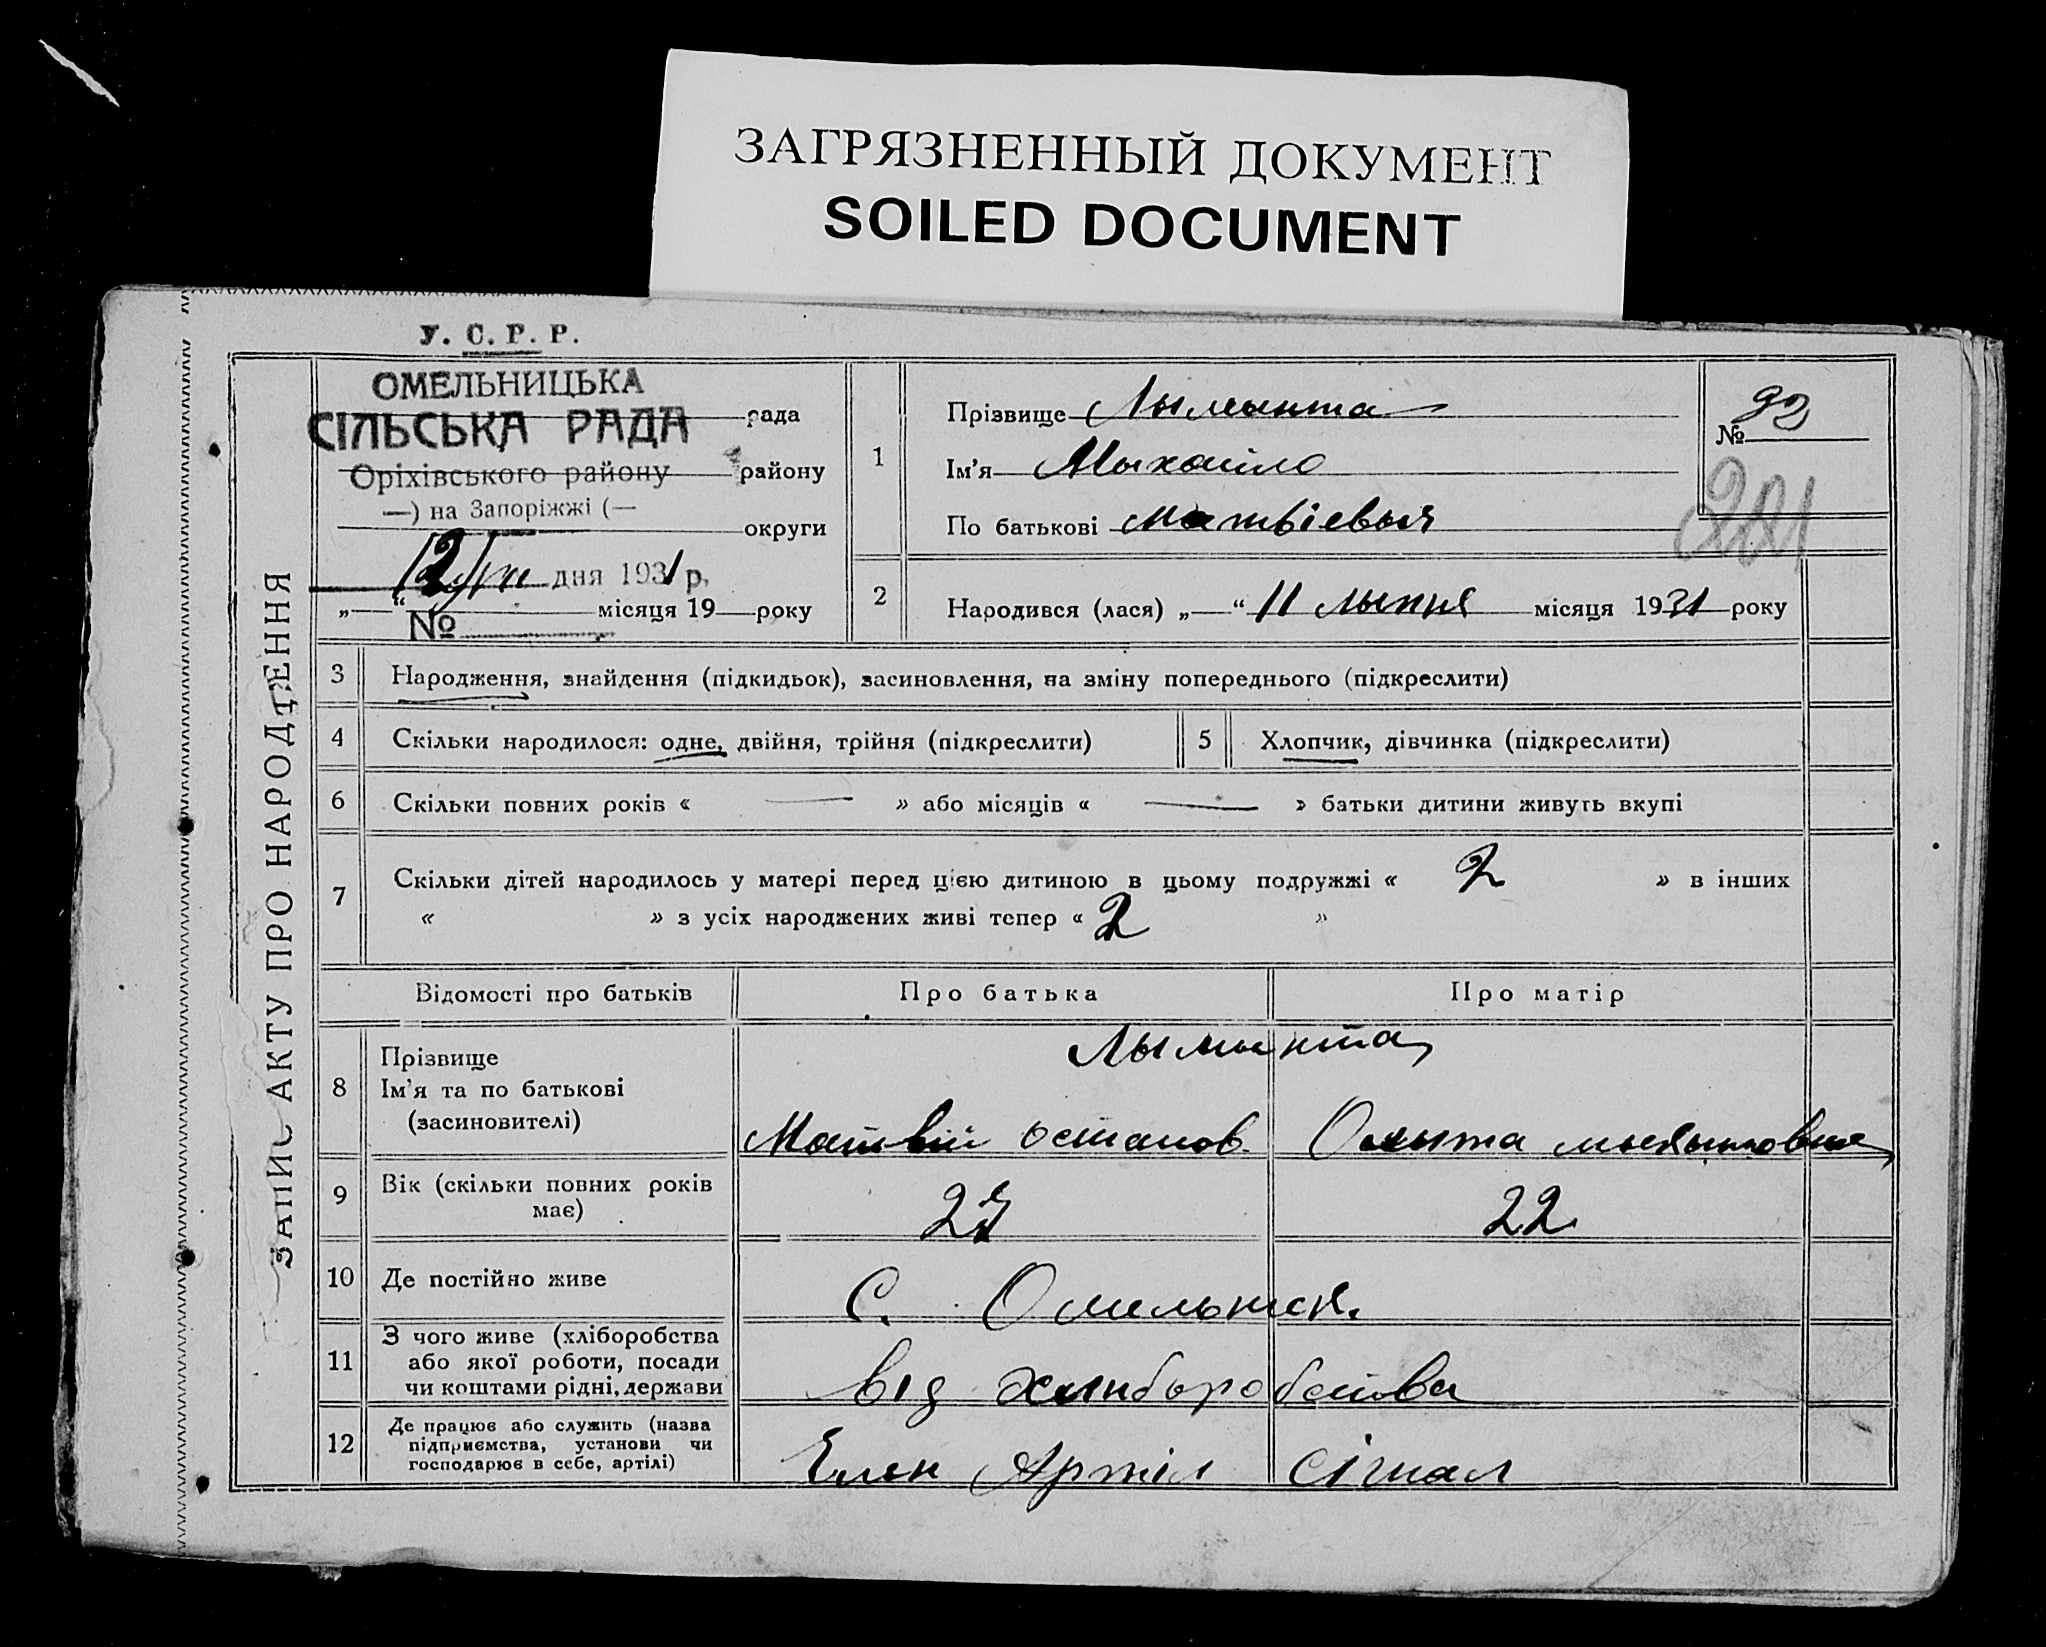 ЗАГРЯЗНЕННЫЙ ДОКУМЕНТ
SOILED DOCUMENT
У. С. Р. Р.
ОМЕЛЬНИЦЬКА
СІЛЬСЬКА РАДА рада
Оріхівського району району
—) на Запоріжжі (—
округи
12/VII дня 1931 р.
„—“ місяця 19 року
№
ЗАПИС АКТУ ПРО НАРОДЖЕННЯ
1 Прізвище
Ім'я Мыхайло
По батькові матвіевыч
№ 93
2 Народився (лася) „—“ 11 лыпня місяця 1931 року
3 Народження, знайдення (підкидьок), засиновлення, на зміну попереднього (підкреслити)
4 Скільки народилося: одне, двійня, трійня (підкреслити) 5 Хлопчик, дівчинка (підкреслити)
6 Скільки повних років « — » або місяців « — » батьки дитини живуть вкупі
7 Скільки дітей народилось у матері перед цією дитиною в цьому подружжі « 2 » в інших
« » з усіх народжених живі тепер « 2 »
Відомості про батьків Про батька Про матір
8 Прізвище
Ім'я та по батькові
(засиновителі)
Матвій остапов
9 Вік (скільки повних років
має) 22
10 Де постійно живе С.
11 З чого живе (хліборобства
або якої роботи, посади
чи коштами рідні, держави від
12 Де працює або служить (назва
підприємства, установи чи
господарює в себе, артілі) Член Артіл сігнал